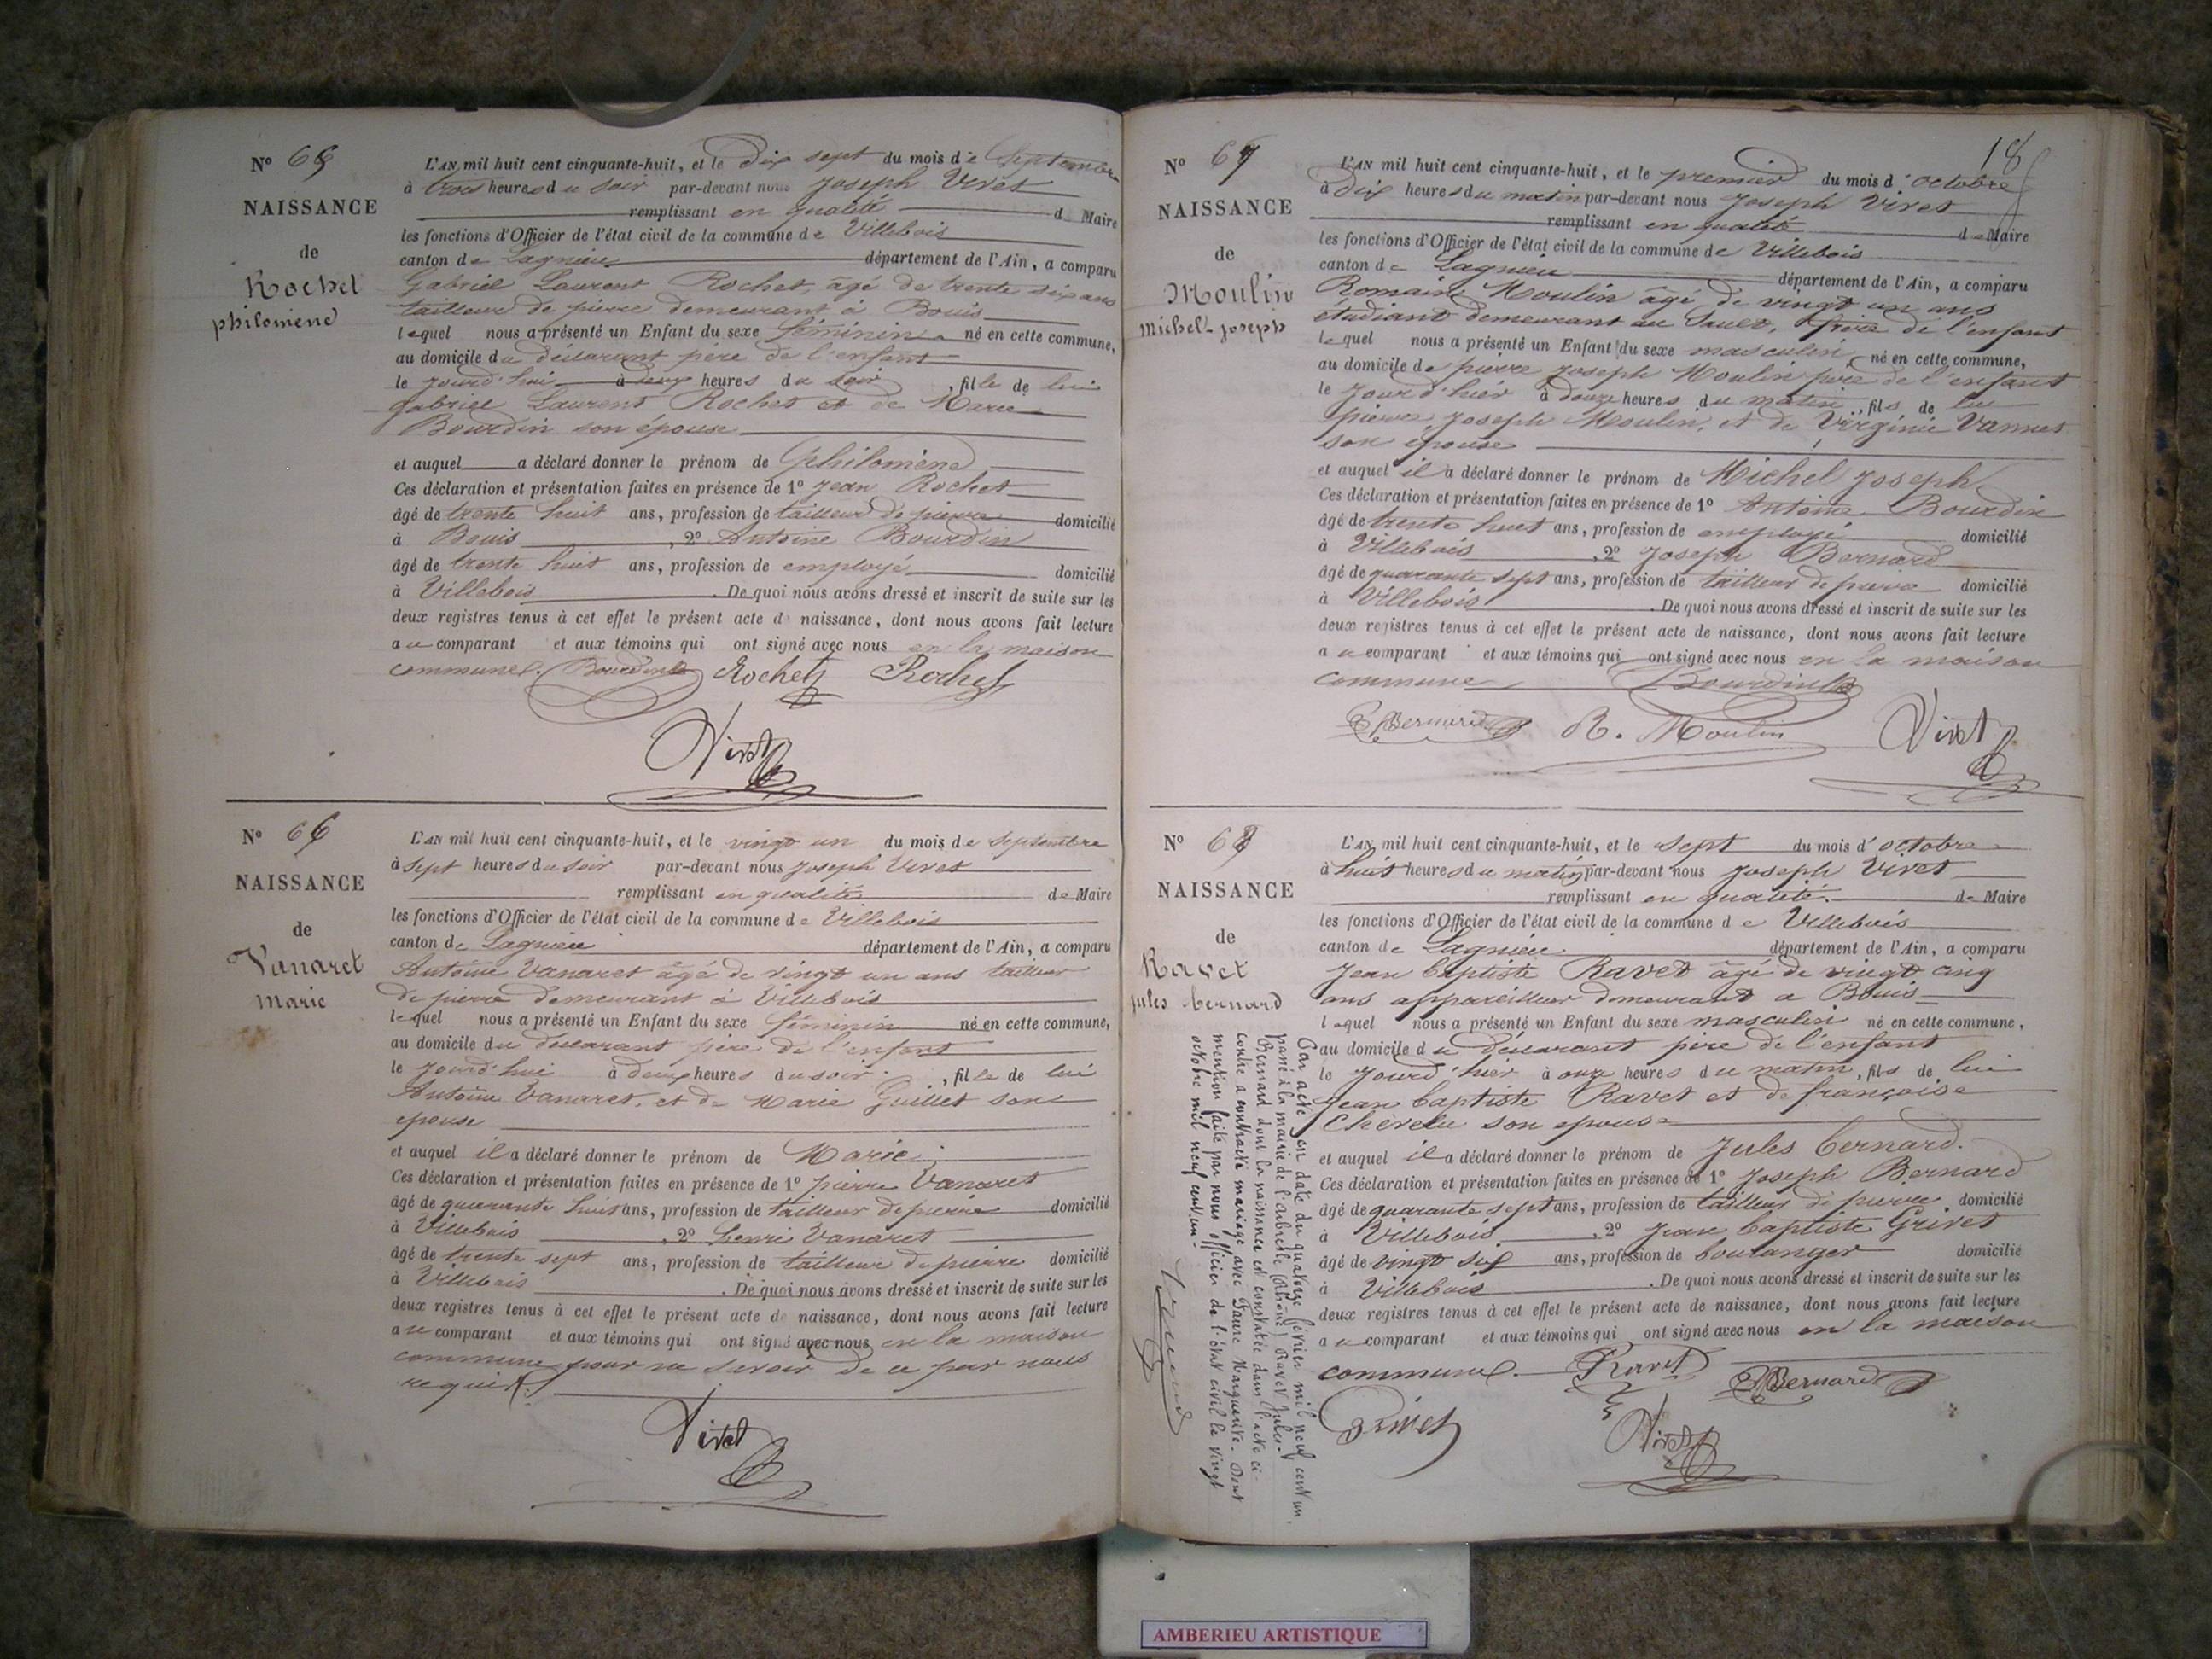 Nº 65
NAISSANCE
de
Rochet
philomène
L'AN mil huit cent cinquante-huit, et le dix sept du mois de Septembre
à trois heures du soir par-devant nous Joseph Viret
remplissant en qualité de Maire
les fonctions d'Officier de l'état civil de la commune de Villebois
canton de Lagnieu département de l'Ain, a comparu
Gabriel Laurent Rochet, âgé de trente six ans
tailleur de pierre demeurant à Bouis
lequel nous a présenté un Enfant du sexe féminin né en cette commune,
au domicile du déclarant père de l'enfant
le jourd'hui à deux heures du soir, fille de lui
gabriel Laurent Rochet et de Marie
Bourdin son épouse
et auquel a déclaré donner le prénom de philomène
Ces déclaration et présentation faites en présence de 1º Jean Rochet
âgé de trente huit ans, profession de tailleur de pierre domicilié
à Bouis, 2º Antoine Bourdin
âgé de trente huit ans, profession de employé domicilié
à Villebois. De quoi nous avons dressé et inscrit de suite sur les
deux registres tenus à cet effet le présent acte de naissance, dont nous avons fait lecture
au comparant et aux témoins qui ont signé avec nous en la maison
commune. Bourdin Rochet Rochet
Viret
Nº 66
NAISSANCE
de
Vanaret
Marie
L'AN mil huit cent cinquante-huit, et le vingt un du mois de septembre
à sept heures du soir par-devant nous Joseph Viret
remplissant en qualité de Maire
les fonctions d'Officier de l'état civil de la commune de Villebois
canton de Lagnieu département de l'Ain, a comparu
Antoine Vanaret âgé de vingt un ans tailleur
de pierre demeurant à Villebois
lequel nous a présenté un Enfant du sexe féminin né en cette commune,
au domicile du déclarant père de l'enfant
le jourd'hui à deux heures du soir, fille de lui
Antoine Vanaret, et de Marie Guillet son
epouse
et auquel il a déclaré donner le prénom de Marie
Ces déclaration et présentation faites en présence de 1º pierre Vanaret
âgé de quarante huit ans, profession de tailleur de pierre domicilié
à Villebois, 2º henri Vanaret
âgé de trente sept ans, profession de tailleur de pierre domicilié
à Villebois. De quoi nous avons dressé et inscrit de suite sur les
deux registres tenus à cet effet le présent acte de naissance, dont nous avons fait lecture
au comparant et aux témoins qui ont signé avec nous en la maison
commune pour ne savoir de ce par nous
requis.
Viret
18
Nº 67
NAISSANCE
de
Moulin
Michel-Joseph
L'AN mil huit cent cinquante-huit, et le premier du mois d'octobre
à dix heures du matin par-devant nous Joseph Viret
remplissant en qualité de Maire
les fonctions d'Officier de l'état civil de la commune de Villebois
canton de Lagnieu département de l'Ain, a comparu
Romain Moulin âgé de vingt un ans
étudiant demeurant au Sault, frère de l'enfant
lequel nous a présenté un Enfant du sexe masculin né en cette commune,
au domicile de pierre Joseph Moulin père de l'enfant
le jourd'hier à douze heures du matin, fils de lui
pierre Joseph Moulin, et de Virginie Vannet
son épouse
et auquel il a déclaré donner le prénom de Michel Joseph
Ces déclaration et présentation faites en présence de 1º Antoine Bourdin
âgé de trente huit ans, profession de employé domicilié
à Villebois, 2º Joseph Bernard
âgé de quarante sept ans, profession de tailleur de pierre domicilié
à Villebois. De quoi nous avons dressé et inscrit de suite sur les
deux registres tenus à cet effet le présent acte de naissance, dont nous avons fait lecture
au comparant et aux témoins qui ont signé avec nous en la maison
commune Bourdin
Bernard R. Moulin Viret
Nº 68
NAISSANCE
de
Ravet
jules bernard
L'AN mil huit cent cinquante-huit, et le sept du mois d'octobre
à huit heures du matin par-devant nous Joseph Viret
remplissant en qualité de Maire
les fonctions d'Officier de l'état civil de la commune de Villebois
canton de Lagnieu département de l'Ain, a comparu
Jean baptiste Ravet âgé de vingt cinq
ans appareilleur demeurant a Bouis
lequel nous a présenté un Enfant du sexe masculin né en cette commune,
au domicile du déclarant père de l'enfant
le jourd'hier à onze heures du matin, fils de lui
Jean baptiste Ravet et de françoise
Cherelu son epouse
et auquel il a déclaré donner le prénom de Jules bernard.
Ces déclaration et présentation faites en présence de 1º Joseph Bernard
âgé de quarante sept ans, profession de tailleur de pierre domicilié
à Villebois, 2º Jean baptiste Grivet
âgé de vingt six ans, profession de boulanger domicilié
à Villebois. De quoi nous avons dressé et inscrit de suite sur les
deux registres tenus à cet effet le présent acte de naissance, dont nous avons fait lecture
au comparant et aux témoins qui ont signé avec nous en la maison
commune. Ravet Bernard
Grivet Viret
Par acte en date du quatorze février mil neuf cent un,
passé à la mairie de l'arbresle (Rhône) Ravet Jules-
Bernard dont la naissance est constatée dans l'acte ci-
contre a contracté mariage avec Faure Marguerite. Dont
mention faite par nous officier de l'état civil le vingt
octobre mil neuf cent un.
AMBERIEU ARTISTIQUE